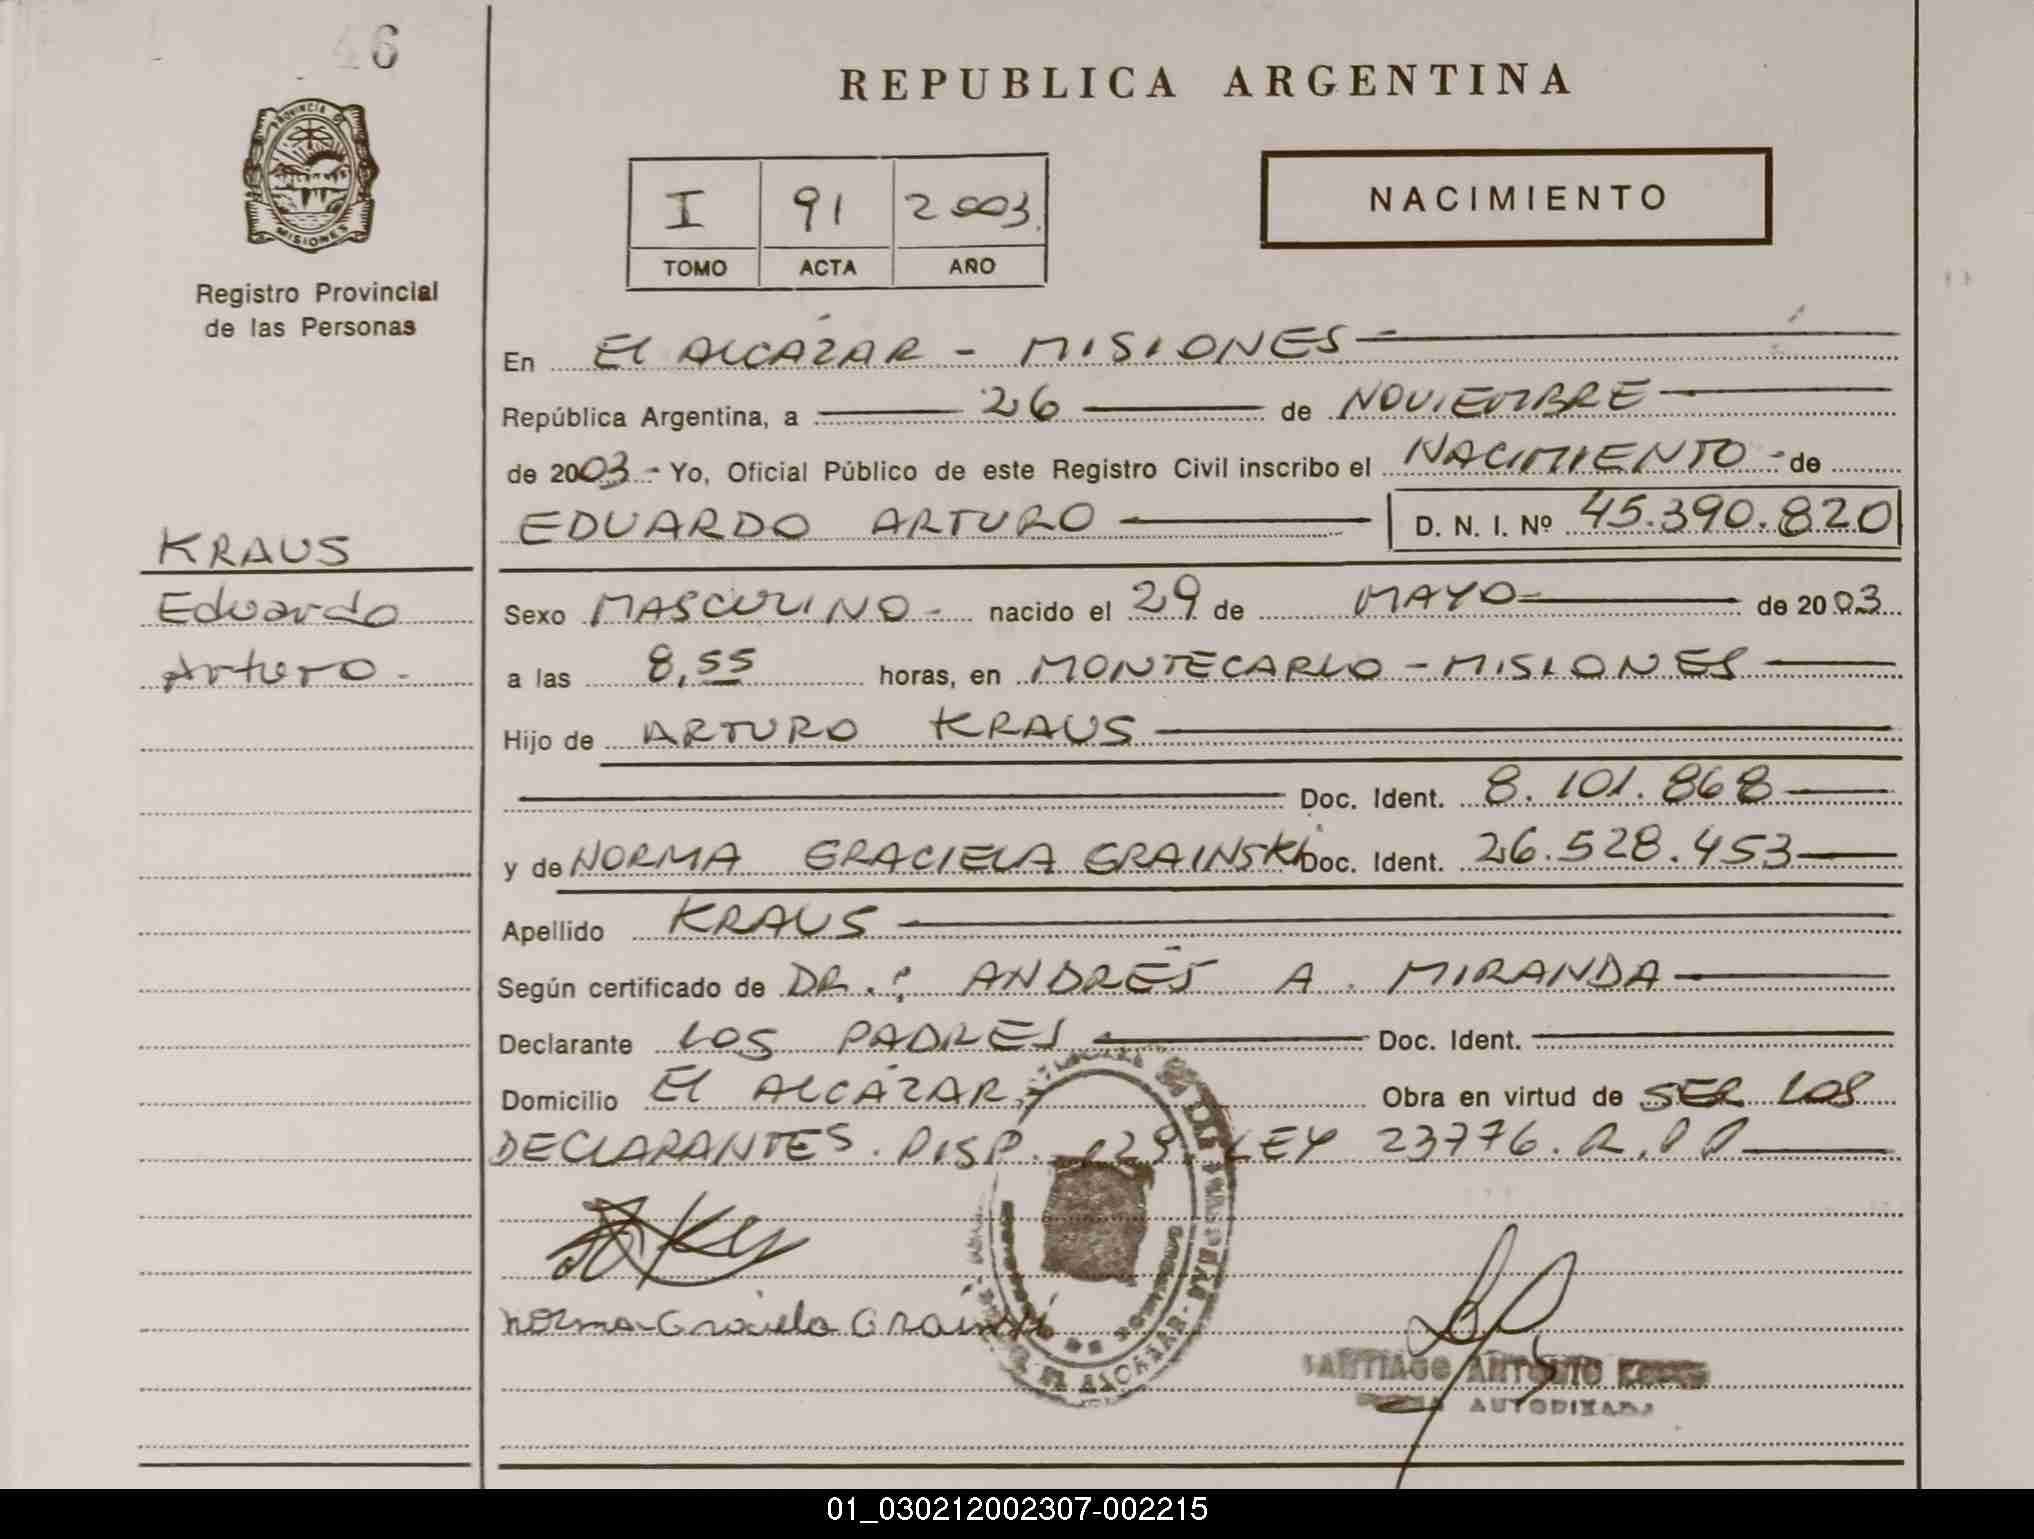 46
REPUBLICA ARGENTINA
PROVINCIA DE
MISIONES
Registro Provincial
de las Personas
I 91 2003
TOMO ACTA AÑO
NACIMIENTO
En El ALCAZAR - MISIONES
República Argentina, a 26 de NOVIEMBRE
de 2003 - Yo, Oficial Público de este Registro Civil inscribo el NACIMIENTO - de
EDUARDO ARTURO D. N. I. Nº 45.390.820
KRAUS
Eduardo
Arturo -
Sexo MASCULINO - nacido el 29 de MAYO de 2003
a las 8,55 horas, en MONTECARLO - MISIONES
Hijo de ARTURO KRAUS
Doc. Ident. 8.101.868
y de NORMA GRACIELA GRAINSKI Doc. Ident. 26.528.453
Apellido KRAUS
Según certificado de DR.: ANDRÉS A. MIRANDA
Declarante LOS PADRES Doc. Ident.
Domicilio El ALCÁZAR Obra en virtud de SER LOS
DECLARANTES. DISP. LEY 23776. R.P.P
Norma Graciela
EL ALCAZAR
SANTIAGO ANTONIO
AUTORIZADA
01_030212002307-002215